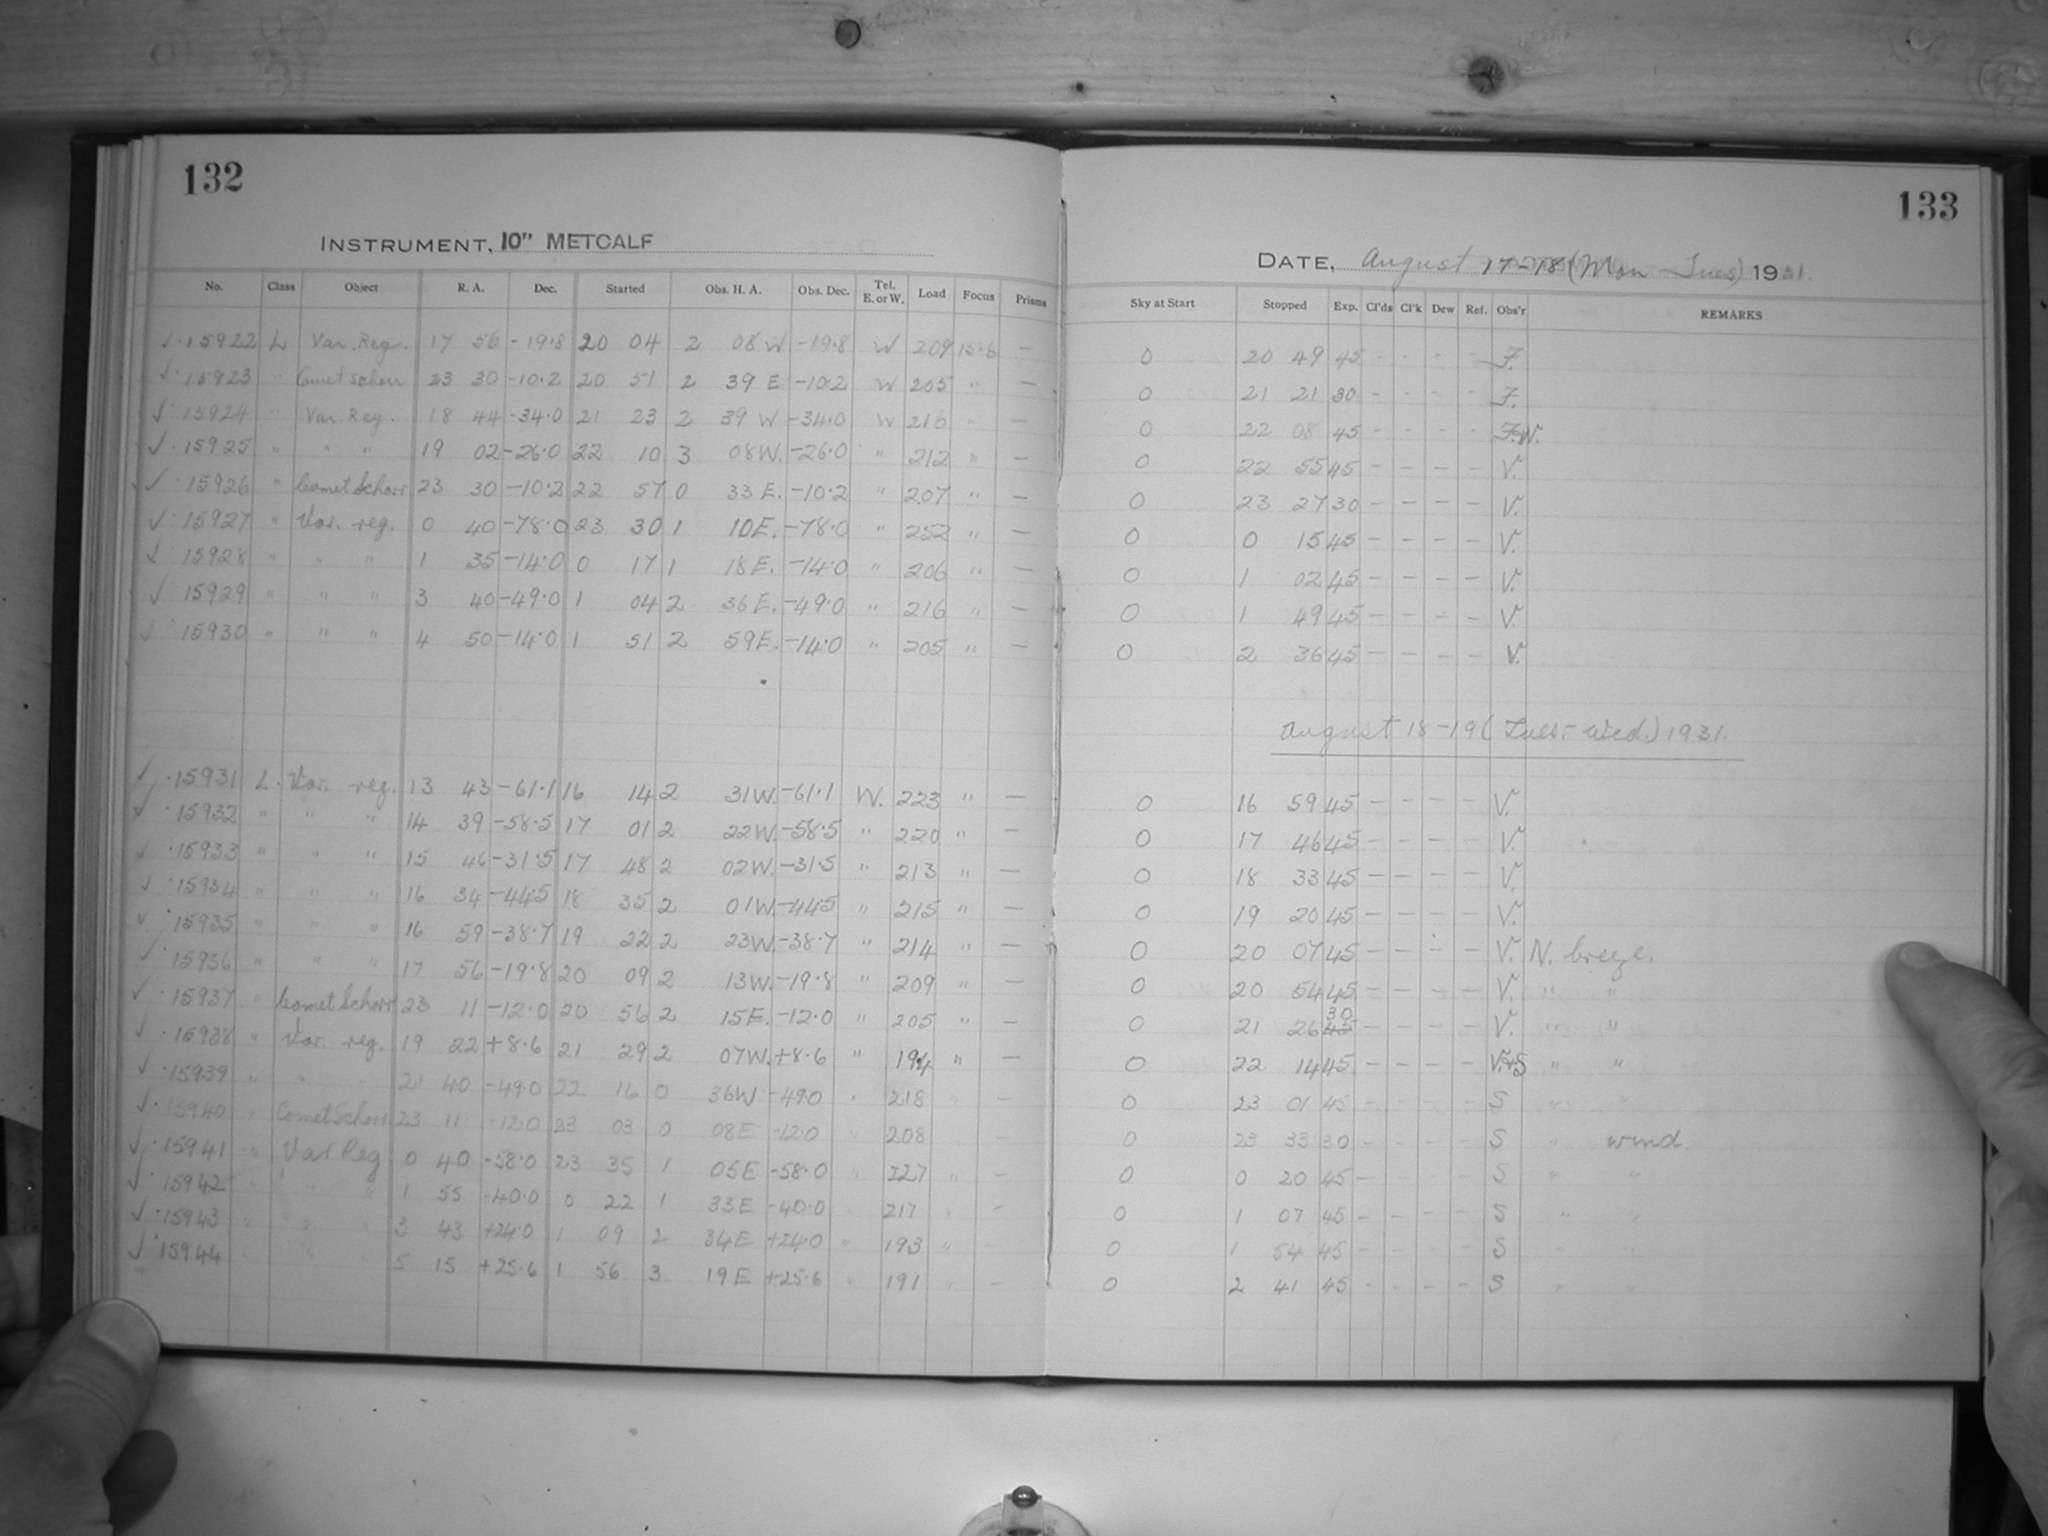 132
INSTRUMENT, 10" METCALF
No. Class Object R. A. Dec. Started Obs. H. A. Obs. Dec. Tel. E. or W. Load Focus Prisms
✓ · 15922 L Var. Reg. 17 56 -19.8 20 04 2 08 W -19.8 W 209 15.6 —
✓ · 15923 " Comet Schorr 23 30 -10.2 20 51 2 39 E -10.2 W 205 " —
✓ · 15924 " Var. Reg. 18 44 -34.0 21 23 2 39 W -34.0 W 216 " —
✓ · 15925 " " " 19 02 -26.0 22 10 3 08 W. -26.0 " 212 " —
✓ · 15926 " Comet Schorr 23 30 -10.2 22 57 0 33 E. -10.2 " 207 " —
✓ · 15927 " Var. reg. 0 40 -78.0 23 30 1 10 E. -78.0 " 252 " —
✓ · 15928 " " " 1 35 -14.0 0 17 1 18 E. -14.0 " 206 " —
✓ · 15929 " " " 3 40 -49.0 1 04 2 36 E. -49.0 " 216 " —
✓ · 15930 " " " 4 50 -14.0 1 51 2 59 E. -14.0 " 205 " —
✓ · 15931 L. Var. reg. 13 43 -61.1 16 14 2 31 W. -61.1 W. 223 " —
✓ · 15932 " " " 14 39 -58.5 17 01 2 22 W. -58.5 " 220 " —
✓ · 15933 " " " 15 46 -31.5 17 48 2 02 W. -31.5 " 213 " —
✓ · 15934 " " " 16 34 -44.5 18 35 2 01 W. -44.5 " 215 " —
✓ · 15935 " " " 16 59 -38.7 19 22 2 23 W. -38.7 " 214 " —
✓ · 15936 " " " 17 56 -19.8 20 09 2 13 W. -19.8 " 209 " —
✓ · 15937 " Comet Schorr 23 11 -12.0 20 56 2 15 E. -12.0 " 205 " —
✓ · 15938 " Var. reg. 19 22 +8.6 21 29 2 07 W. +8.6 " 194 " —
✓ · 15939 " " " 21 40 -49.0 22 16 0 36 W -49.0 " 218 " —
✓ · 15940 " Comet Schorr 23 11 -12.0 23 03 0 08 E -12.0 " 208 " —
✓ · 15941 " Var Reg 0 40 -58.0 23 35 1 05 E -58.0 " 227 " —
✓ · 15942 " " " 1 55 -40.0 0 22 1 33 E -40.0 " 217 " —
✓ · 15943 " " " 3 43 +24.0 1 09 2 34 E +24.0 " 193 " —
✓ · 15944 " " " 5 15 +25.6 1 56 3 19 E +25.6 " 191 " —
133
DATE, August 17-18 (Mon - Tues) 1931.
Sky at Start Stopped Exp. Cl'ds Cl'k Dew Ref. Obs'r REMARKS
0 20 49 45 - - - - F.
0 21 21 30 - - - - F.
0 22 08 45 - - - - F.W.
0 22 55 45 - - - - V.
0 23 27 30 - - - - V.
0 0 15 45 - - - - V.
0 1 02 45 - - - - V.
0 1 49 45 - - - - V.
0 2 36 45 - - - - V.
August 18-19 (Tues.- Wed.) 1931.
0 16 59 45 - - - - V.
0 17 46 45 - - - - V.
0 18 33 45 - - - - V.
0 19 20 45 - - - - V.
0 20 07 45 - - - - V. N. breeze.
0 20 54 45 - - - - V. " "
0 21 26 30 45 - - - - V. " "
0 22 14 45 - - - - V.+S " "
0 23 01 45 - - - - S " "
0 23 33 30 - - - - S " wind
0 0 20 45 - - - - S " "
0 1 07 45 - - - - S " "
0 1 54 45 - - - - S " "
0 2 41 45 - - - - S " "